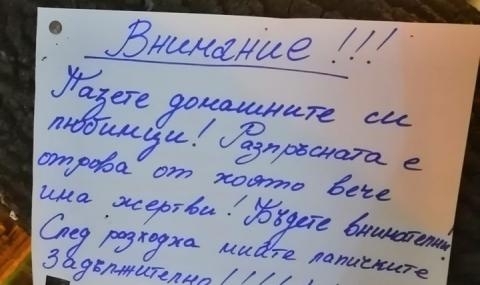 Внимание!!!
Пазете домашните си
любимци! Разпръсната е
отрова от която вече
има жертви! Бъдете внимателни!
След разходка мийте лапичките
Задължително!!!!!!